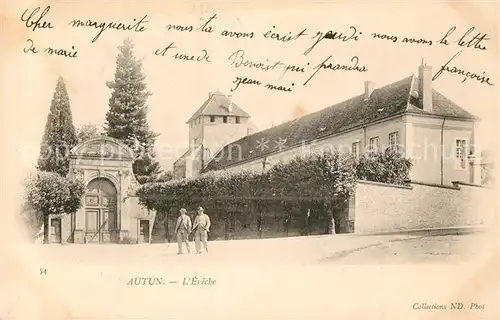 Cher marguerite nous ta avons écrit jeudi nous avons la lettre
de marie et une de Benoist qui prendra françoise
jean mari
54
AUTUN. — L'Evêche
Collections ND. Phot